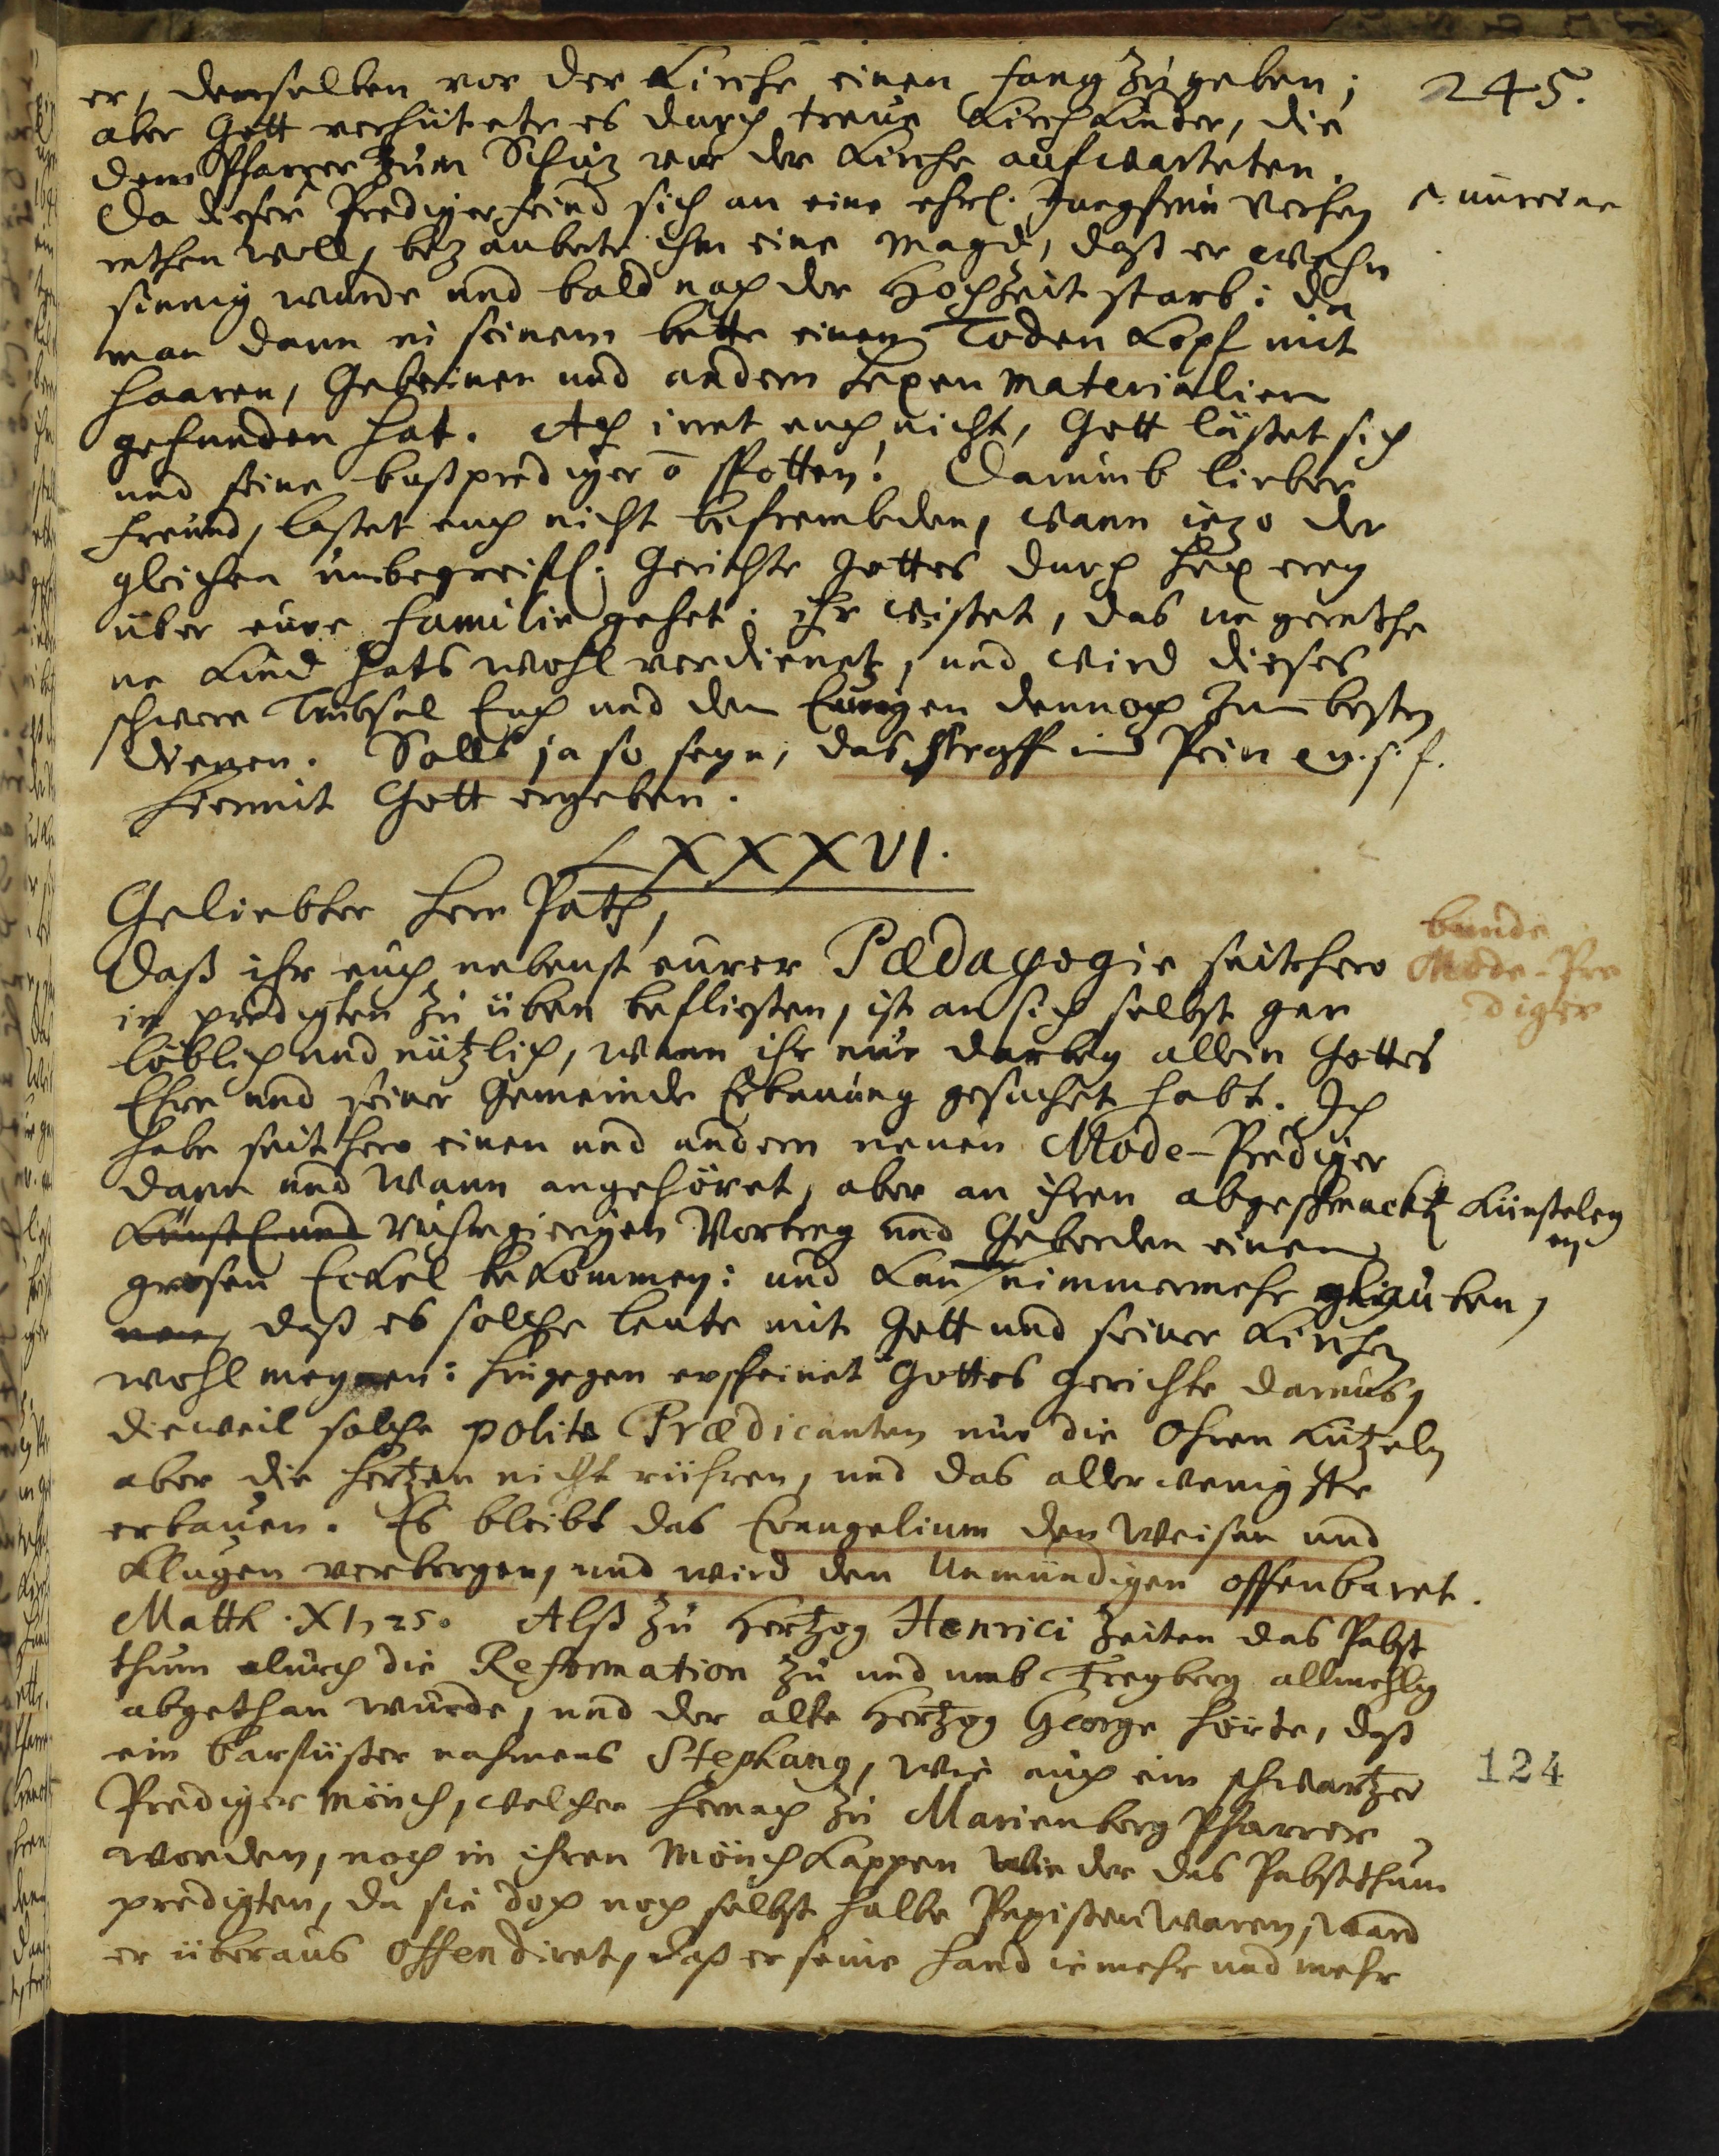 245.
er, demselben vor der Kirche einen fang zu geben;
aber Gott verhütete es durch treue Kirchkinder, die
dem Pfarrer zum Schuz vor der Kirche aufwarteten.
Da dieser Prediger feind sich an eine ehrl. Jungfrau verhey
rathen woll, bezaubete ihm eine Magd, daß er wahn
sinnig wurde und bald nach der Hochzeit starb: da
man dann in seinem bette einen Toden Kopf mit
haaren, Gebeinen und andern hexen materialien
gefunden hat. Ach irret euch nicht, Gott läßet sich
und seine bußprediger ō spotten! Darumb lieber
freund, laßet euch nicht befrembden, wann iezo der
gleichen unbegreifl. Gerichte Gottes durch hexerey
über eure familie gehet: ihr wißet, das ungerathe
ne Kind hats wohl verdienet, und wird dieses
schwere Trübsal Euch und den Eurigen dennoch zum besten
dienen. Solls ja so seyn, das straff und Pein u. s. f.
hiermit Gott ergeben.
LXXXVI.
Geliebter herr Path,
bunde
Mode-Pre
diger
daß ihr euch nebenst eurer Pædagogie seithero
in predigten zu üben befließen, ist an sich selbst gar
löblich und nützlich, wann ihr nur darbey allein Gottes
Ehre und seiner Gemeinde Erbauung gesuchet habt. Ich
habe seithero einen und andern neuen Mode-Prediger
dann und wann angehöret, aber an ihren abgeschmackt
Künsteley
en
Künstl. und ruhmgierigen Vortrag und Geberden einen
grosen Eckel bekommen: und kan nimmermehr glauben,
daß es solche leute mit Gott und seiner Kirchen
wohl meynen: hingegen erscheinet Gottes Gerichte daraus,
dieweil solche polite Prædicanten nur die Ohren kützeln
aber die hertzen nicht rühren, und das allerwenigste
erbauen. Es bleibt das Evangelium den Weisen und
Klugen verborgen, und wird den Unmündigen offenbaret.
Matth. XI, 25. Alß zu Hertzog Henrici Zeiten das Pabst
thum durch die Reformation zu und umb Freyberg allmehlig
abgethan wurde, und der alte Hertzog George hörte, daß
ein barfüßer nahmens Stephang, wie auch ein schwartzer
124
Prediger Mönch, welcher hernach zu Marienberg Pfarrer
worden, noch in ihren Mönch Kappen wieder das Pabstthum
predigten, da sie doch noch selbst halbe Papisten waren, ward
er überaus offendiret, daß er seine hand iemehr und mehr